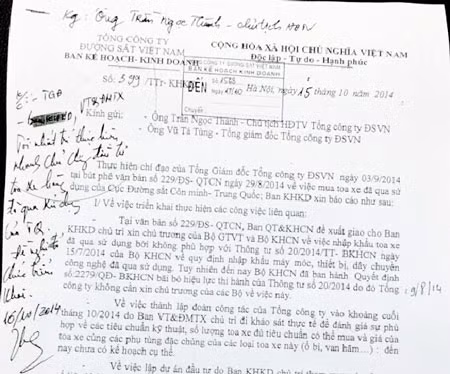 Kg: Ông Trần Ngọc Thành - chủ tịch HĐTV
TỔNG CÔNG TY
ĐƯỜNG SẮT VIỆT NAM
BAN KẾ HOẠCH- KINH DOANH
CỘNG HÒA XÃ HỘI CHỦ NGHĨA VIỆT NAM
Độc lập - Tự do - Hạnh phúc
Số: 599 /TTr- KHKD
TỔNG CÔNG TY ĐƯỜNG SẮT VIỆT NAM
BAN KẾ HOẠCH KINH DOANH
ĐẾN
Chuyển:
Hà Nội, ngày 15 tháng 10 năm 2014
Kính gửi:
- Ông Trần Ngọc Thành – Chủ tịch HĐTV Tổng công ty ĐSVN
- Ông Vũ Tá Tùng - Tổng giám đốc Tổng công ty ĐSVN
K/c: - TGĐ
VT&ĐMTX
Thực hiện chỉ đạo của Tổng Giám đốc Tổng công ty ĐSVN ngày 03/9/2014
tại bút phê văn bản số 229/ĐS- QTCN ngày 29/8/2014 về việc mua toa xe đã qua sử
dụng của Cục Đường sắt Côn minh- Trung Quốc; Ban KHKD xin báo cáo như sau:
1/ Về việc triển khai thực hiện các công việc liên quan:
Tại văn bản số 229/ĐS- QTCN, Ban QT&KHCN đề xuất giao cho Ban
KHKD chủ trì xin chủ trương của Bộ GTVT và Bộ KHCN về việc nhập khẩu toa xe
đã qua sử dụng bởi không phù hợp với Thông tư số 20/2014/TT- BKHCN ngày
15/7/2014 của Bộ KHCN về quy định nhập khẩu máy móc, thiết bị, dây chuyền
công nghệ đã qua sử dụng. Tuy nhiên đến nay Bộ KHCN đã ban hành Quyết định
số:2279/QĐ- BKHCN bãi bỏ hiệu lực thi hành của Thông tư số 20/2014 do đó Tổng
công ty không cần xin chủ trương của các Bộ về việc này.
9/8/14
16/10/2014
Về việc thành lập đoàn công tác của Tổng công ty vào khoảng cuối
tháng 10/2014 do Ban VT&ĐMTX chủ trì đi khảo sát thực tế để đánh giá sự phù
hợp về các tiêu chuẩn kỹ thuật, số lượng toa xe đủ tiêu chuẩn có thể mua và giá của
toa xe cùng các phụ tùng đặc chủng của các loại toa xe này (ổ bi, van hãm…) : đến
nay chưa có kế hoạch cụ thể.
Về việc lập dự án đầu tư do Ban KHKD